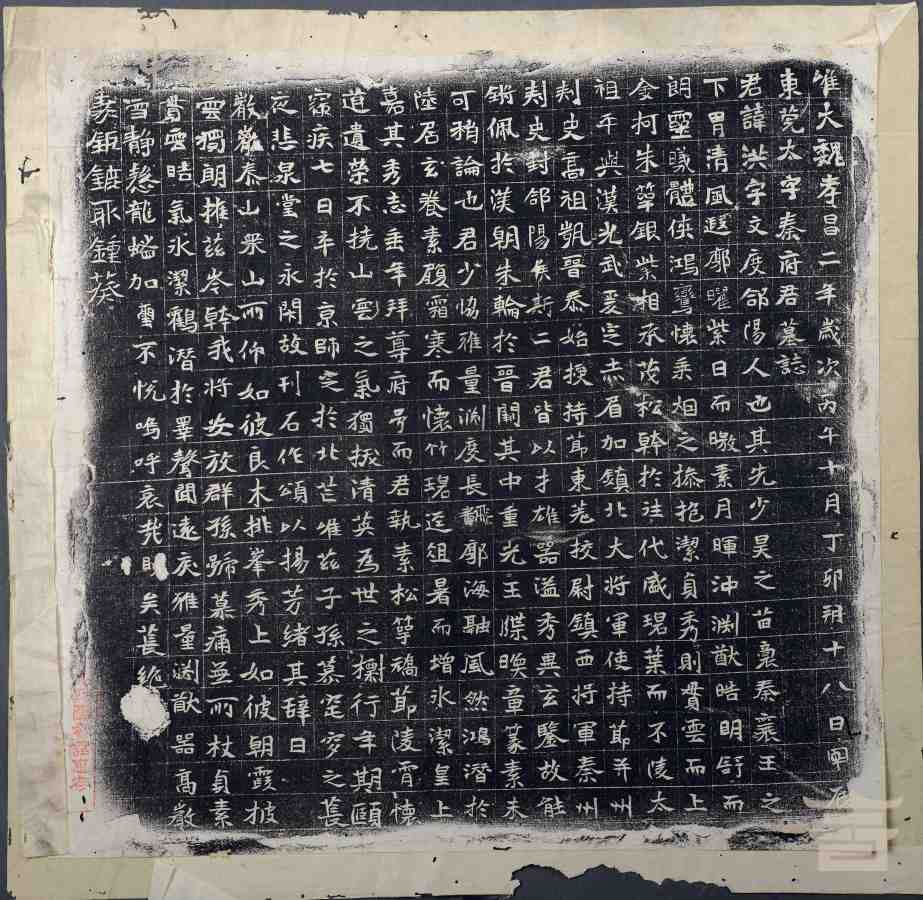 唯大魏孝昌二年歲次丙午十月丁卯朔十八日
東莞太守秦府君墓誌
君諱洪字文度郃陽人也其先少昊之苗裔秦襄王之
下胄清風遐廓曜紫日而暾素月暉沖渊猷皓明舒而
朗靈曦體俠鴻鸞懷乘烟之操抱潔貞秀則貫雲而上
金柯朱萃銀紫相承茂松幹於往代盛琨葉而不淩太
祖平與漢光武爰定赤眉加鎮北大將軍使持節并州
刾史高祖覬晉泰始授持節東羌挍尉鎮西將軍秦州
刾史封郃陽侯斯二君皆以才雄器溢秀異玄鑒故能
鏘佩於漢朝朱輪於晉闕其中重光王牒暎章篆素未
可稍論也君少恊雅量渊度長飜廓海融風然鴻潛於
陸居玄養素顧霜寒而懷竹琨逕俎暑而增氷潔皇上
嘉其秀志垂年拜尊府号而君執素松等磪節陵霄懷
道遺榮不撓山雲之氣獨挀清英爲世之攌行年期頤
寢疾七日卒於京師窆於北芒唯茲子孫慕窀穸之萇
夜悲泉堂之永閑故刊石作頌以揚芳緒其辭曰
嚴巖泰山眾山而仰如彼良木挑峯秀上如彼朝霞披
雲獨朗摧茲岑幹我將安放群孫號慕痛並而杖貞素
貫雲晧氣氷潔鶴潛於睪聲聞遠矣雅量渊猷器高嚴
雪靜懃龍蟠加爵不悅嗚呼哀㢤眀矣萇絕